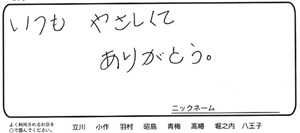 いつも やさしくて
ありがとう。
ニックネーム
よく利用されるお店を
○で囲んでください。
立川 小作 羽村 昭島 青梅 高幡 堀之内 八王子